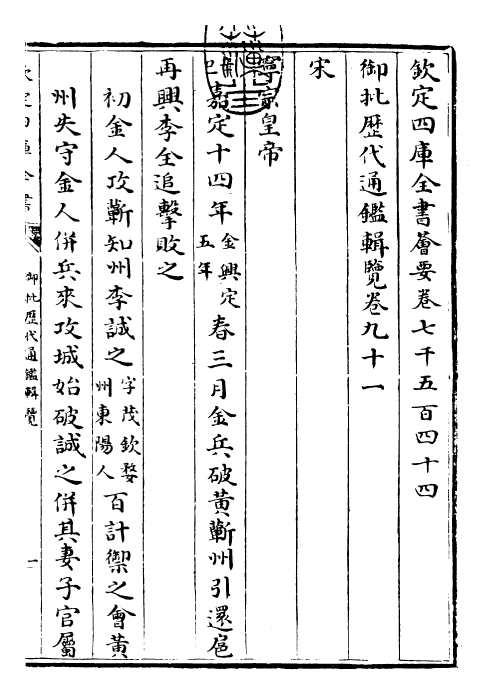 欽定四庫全書薈要卷七千五百四十四
御批歷代通鑑輯覽卷九十一
宋
寧宗皇帝
嘉定十四年金興定五年春三月金兵破黃蘄州引還扈
再興李全追擊敗之
初金人攻蘄知州李誠之字茂欽婺州東陽人百計禦之會黃
州失守金人併兵來攻城始破誠之併其妻子官屬
御批歷代通鑑輯覽
一